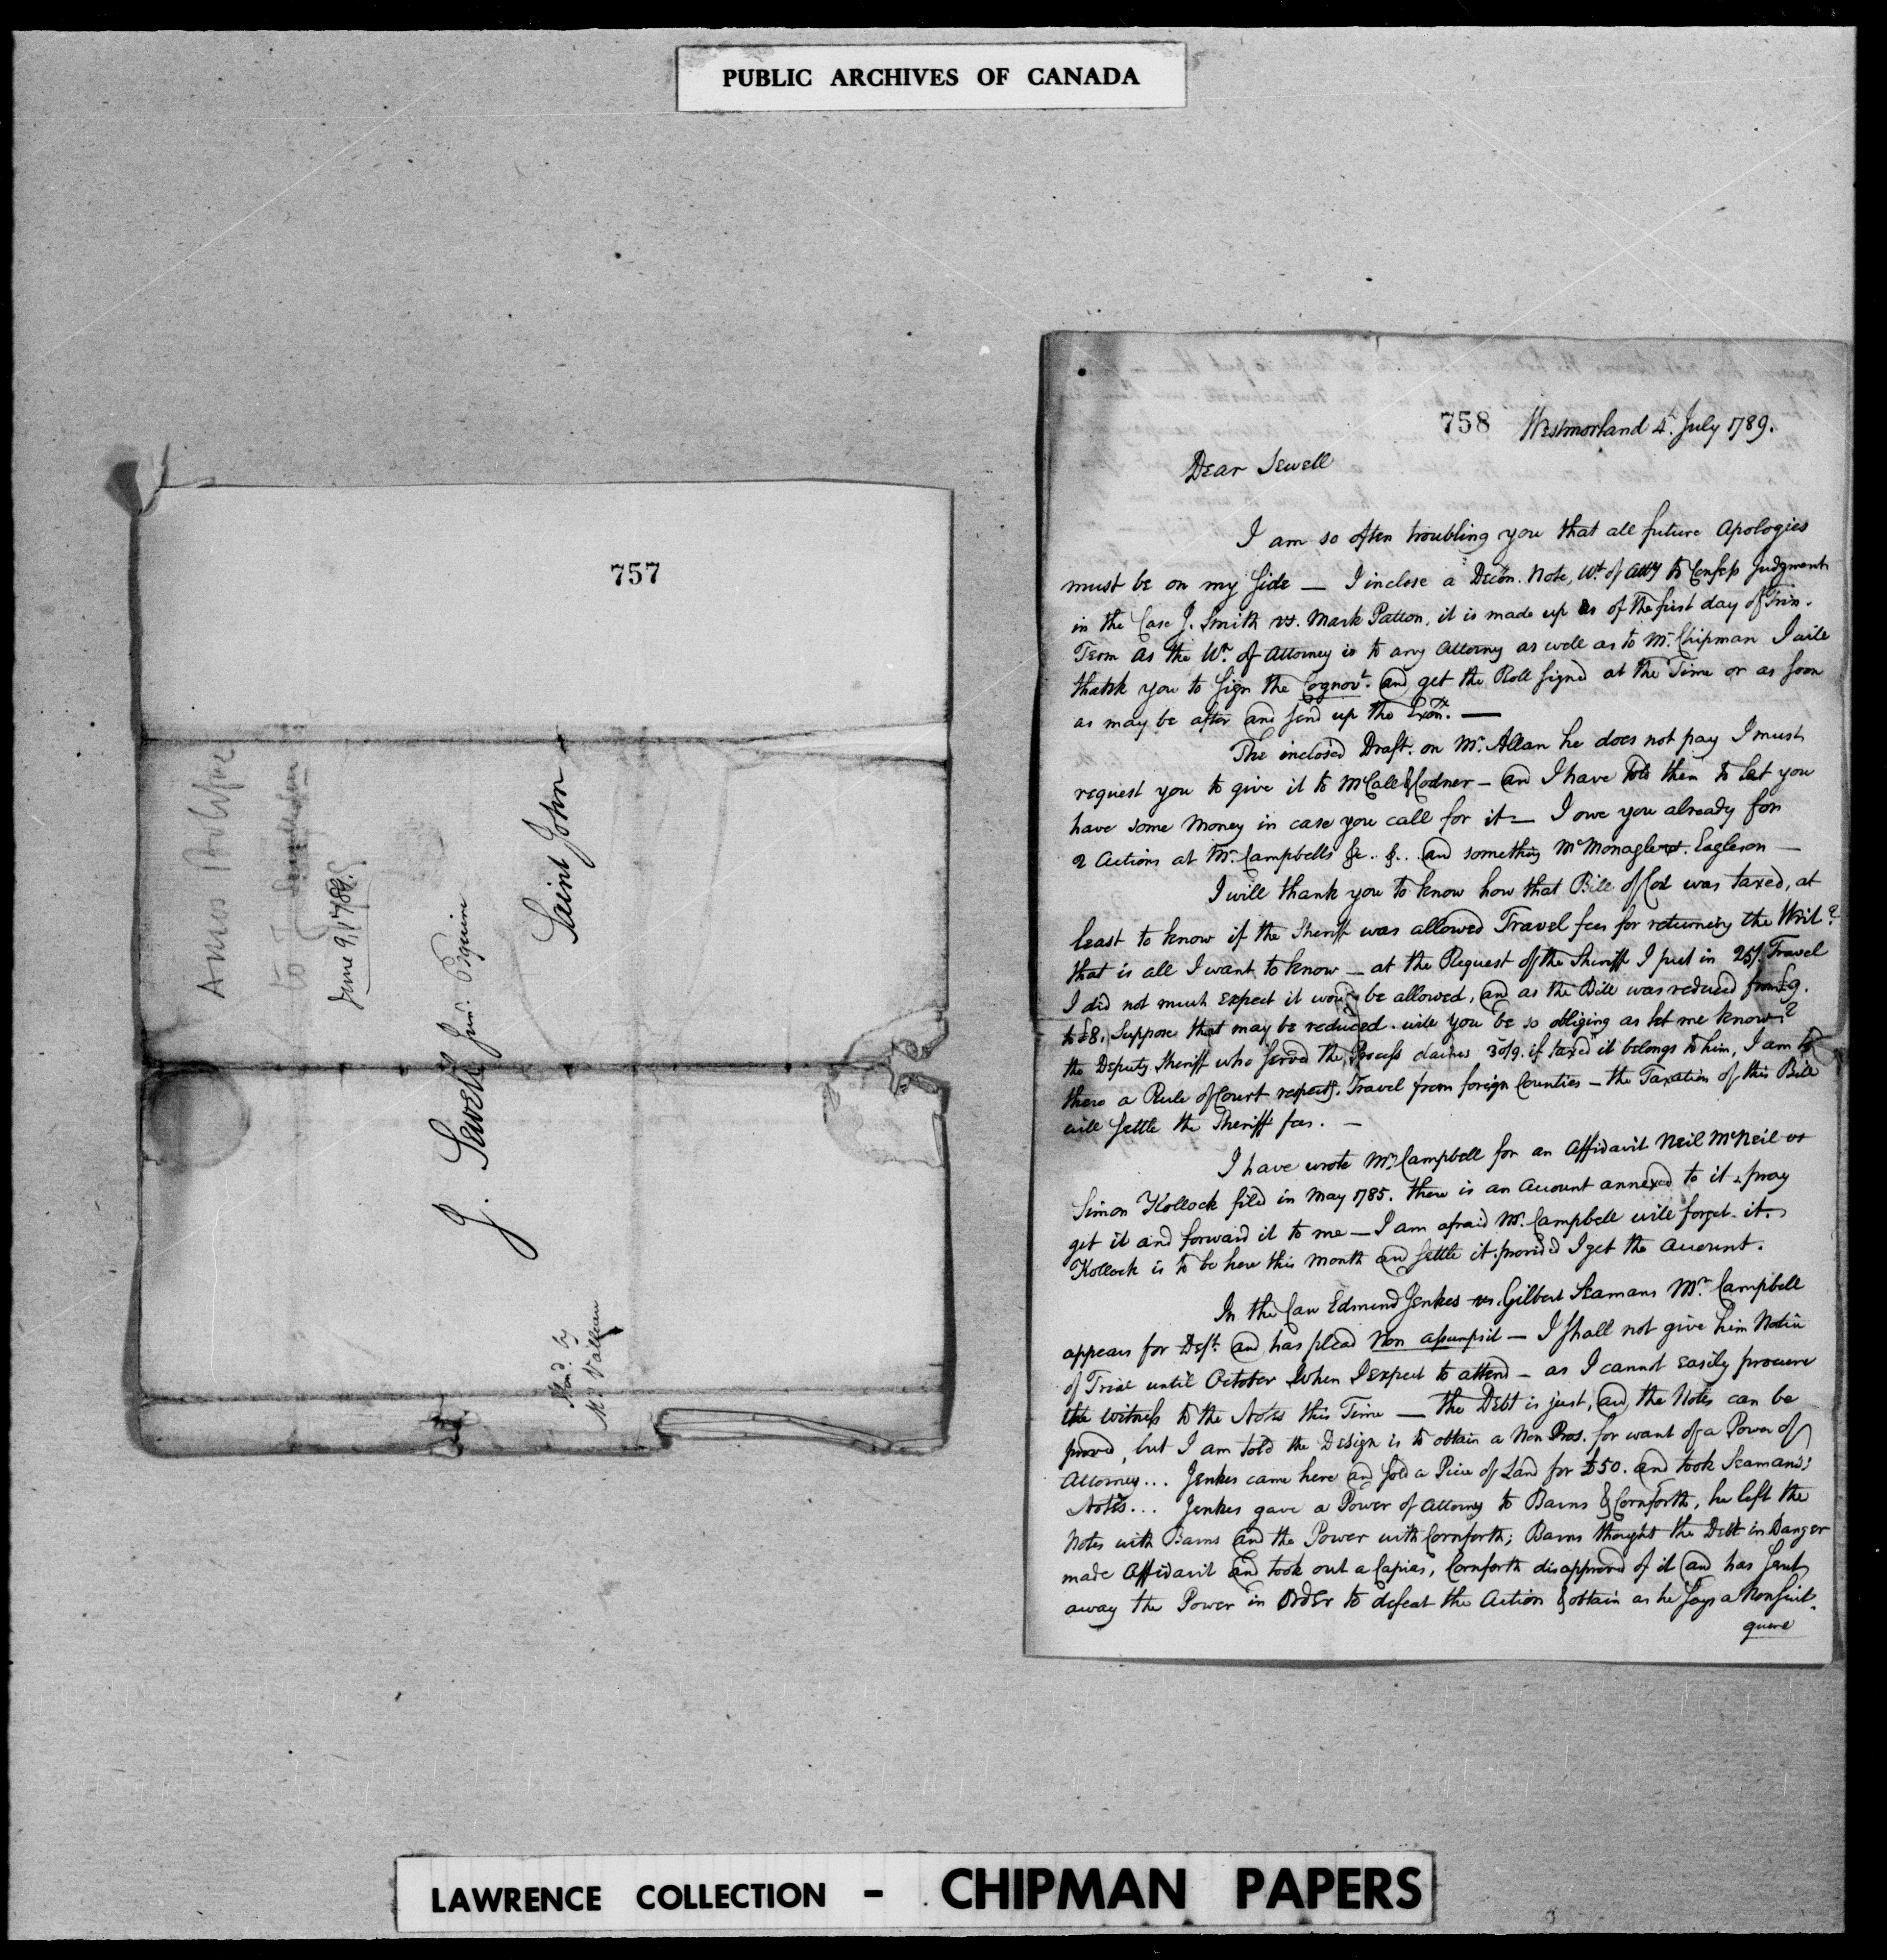 PUBLIC ARCHIVES OF CANADA
757
Amos Botsford
to J
June 9, 1789.
J. Sewell Junr. Esquire
Saint John
Hond. by
Mr.
758 Westmorland 4. July 1789.
Dear Sewell
I am so often troubling you that all future Apologies
must be on my Side — I inclose a Decōn. Note, Wt. of Atty to Confess Judgment
in the Case J. Smith vs. Mark Patton, it is made up as of the first day of Trin.
Term as the Wt. of Attorney is to any Attorney as well as to Mr. Chipman I will
thank you to Sign the Cognovt. and get the Roll signed at the Time or as soon
as may be after and send up the Exōn. —
The inclosed Draft. on Mr. Allan he does not pay I must
request you to give it to McCall & Codner — and I have told them to let you
have some Money in case you call for it — I owe you already for
2 Actions at Mr. Campbells &c.. &.. and something McMonagle vs. Eagleson —
I will thank you to know how that Bill of Cost was taxed, at
least to know if the Sheriff was allowed Travel fees for returning the Writ?
that is all I want to know — at the Request of the Sheriff I put in 25/. Travel
I did not much expect it would be allowed, and as the Bill was reduced from £9.
to £8, Suppose that may be reduced. will you be so obliging as let me know?
the Deputy Sheriff who served the Process claims 30/9. if taxed it belongs to him, I am
there a Rule of Court respectg. Travel from foreign Counties — the Taxation of this Bill
will settle the Sheriff fees. —
I have wrote Mr. Campbell for an Affidavit Neil McNeil vs
Simon Kollock filed in May 1785. there is an Account annexed to it pray
get it and forward it to me — I am afraid Mr. Campbell will forget it.
Kollock is to be here this Month and settle it provided I get the Account.
In the Case Edmund Jenkes vs. Gilbert Seamans Mr. Campbell
appears for Deft. and has plead Non assumpsit — I shall not give him Notice
of Trial until October when I expect to attend — as I cannot easily procure
the Witness to the Notes this Time — the Debt is just, and the Notes can be
proved, but I am told the Design is to obtain a Non Pros. for want of a Power of
Attorney... Jenkes came here and sold a Piece of Land for £50. and took Seamans's
Notes... Jenkes gave a Power of Attorney to Barns & Cornforth, he left the
Notes with Barns and the Power with Cornforth; Barns thought the Debt in Danger
made Affidavit and took out a Capias, Cornforth disapproved of it and has sent
away the Power in Order to defeat the Action & obtain as he says a Nonsuit.
quere
LAWRENCE COLLECTION - CHIPMAN PAPERS